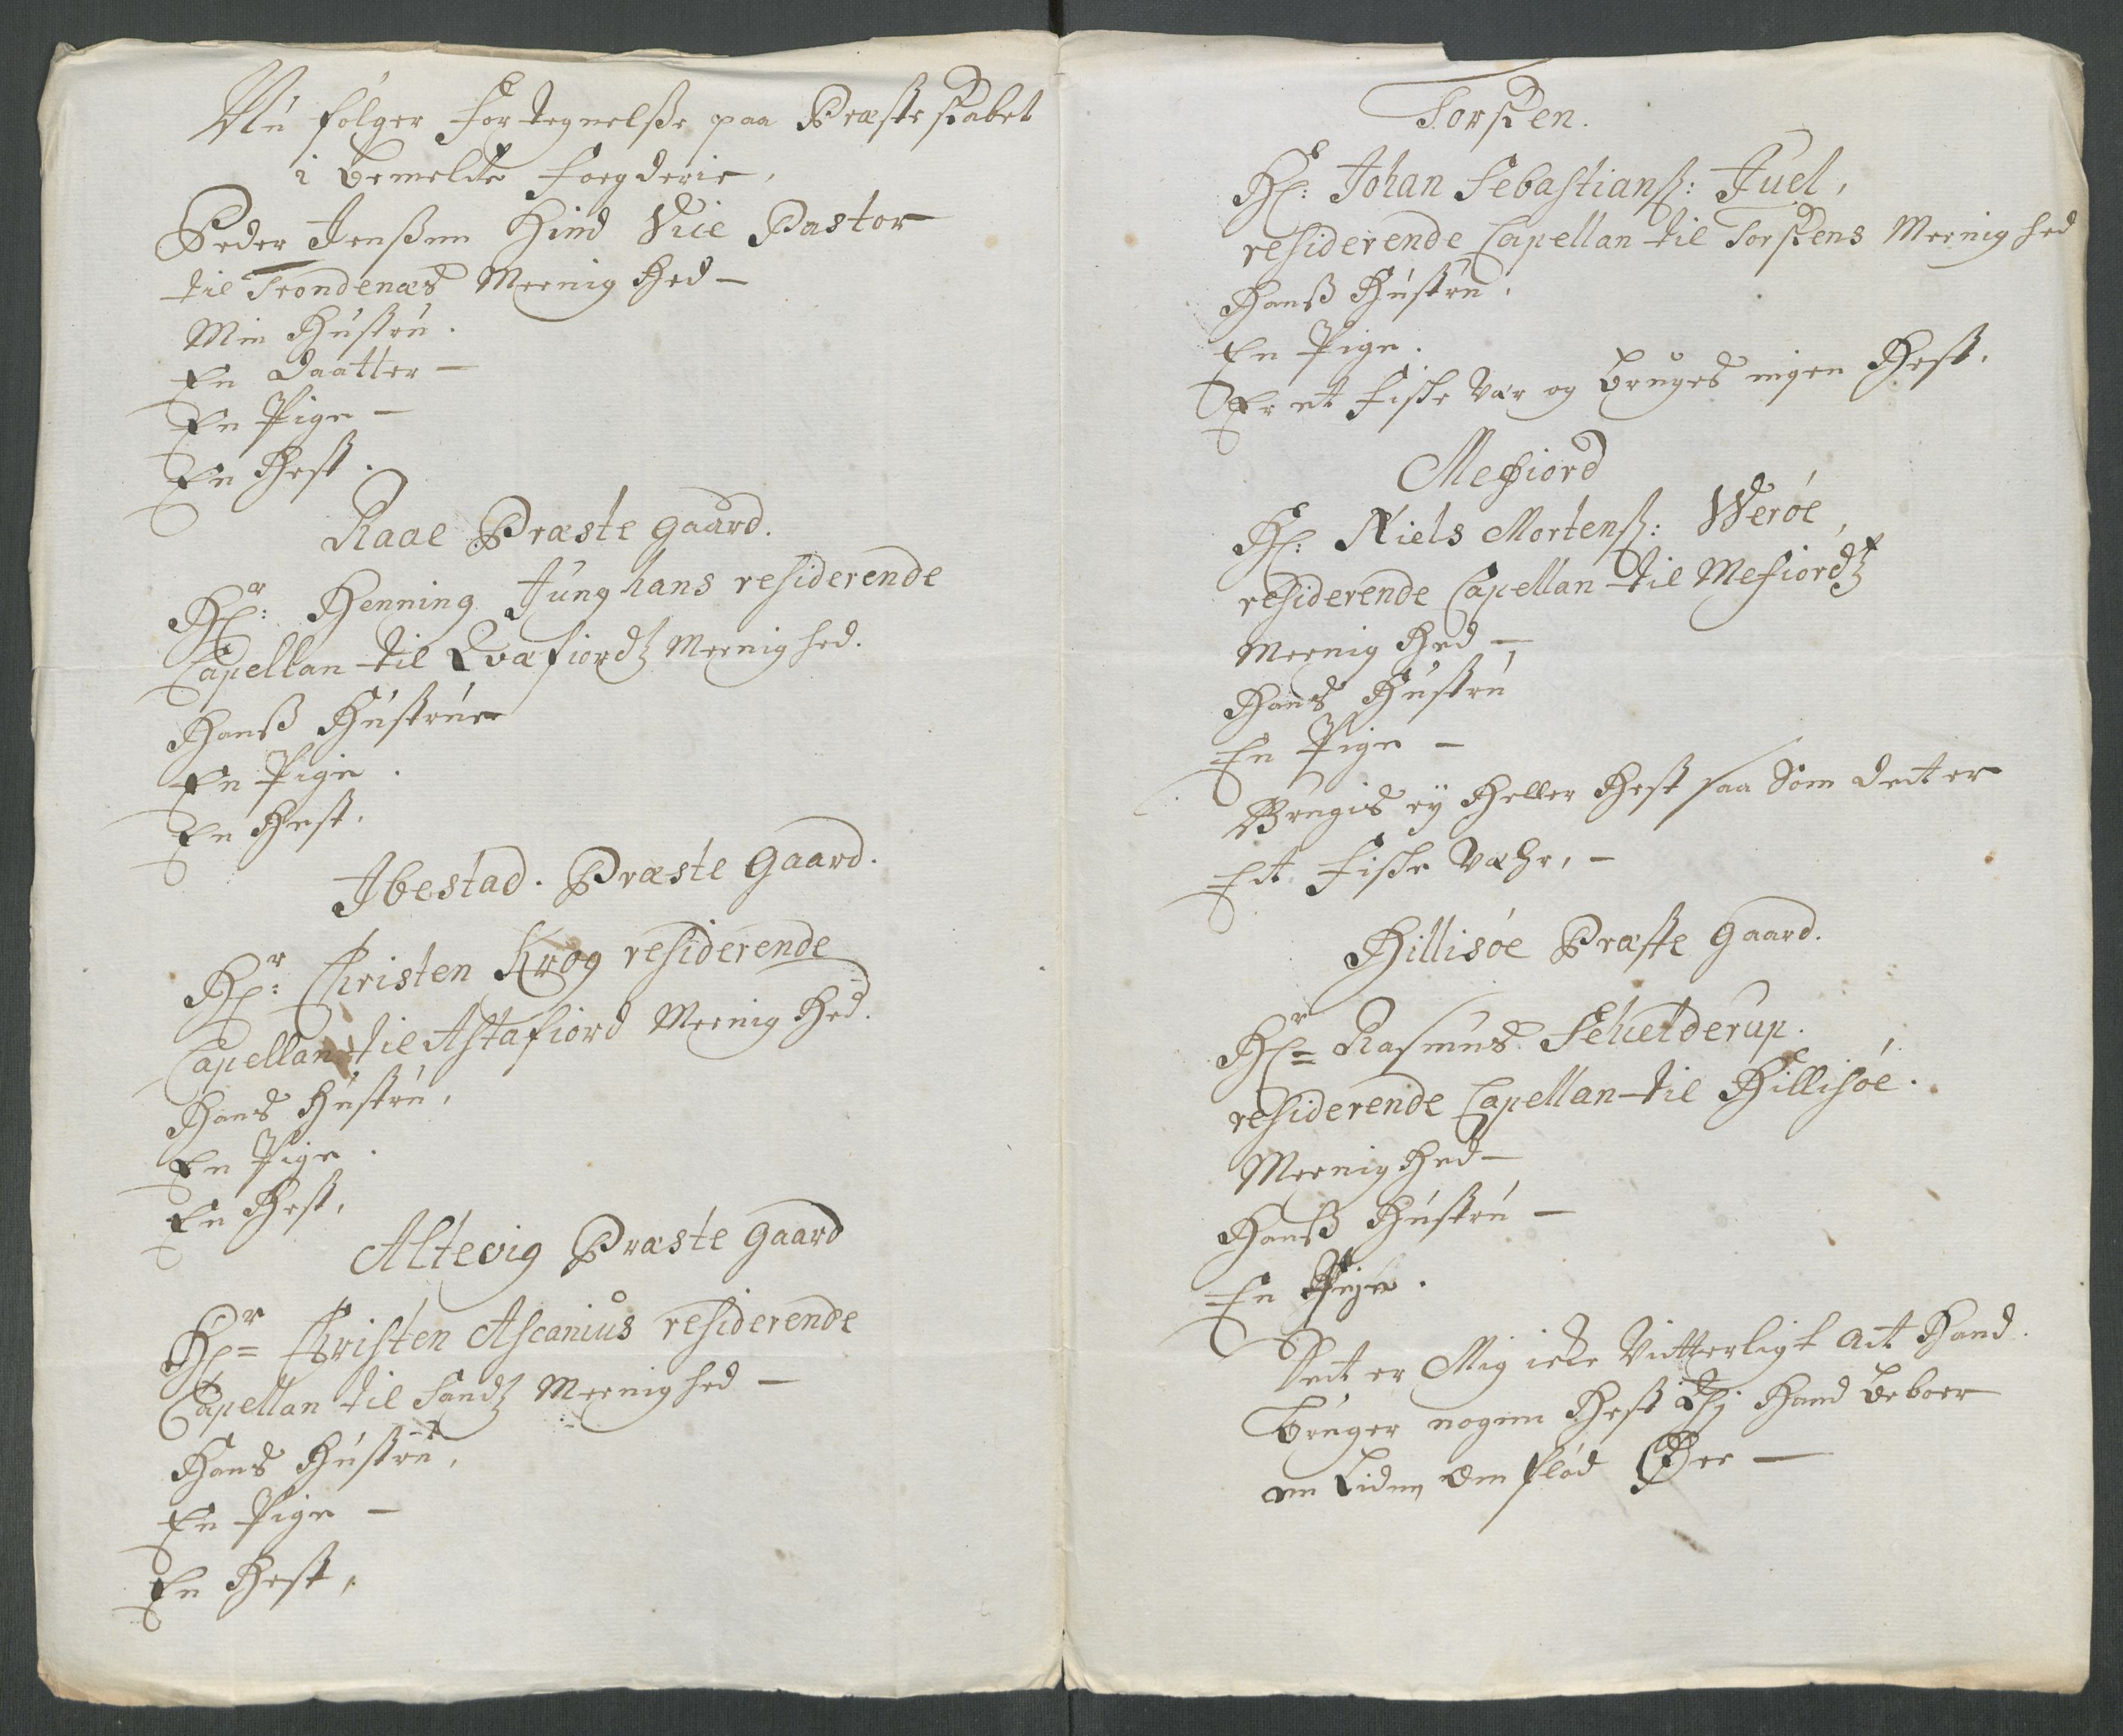 Nu følger Fortegnelse paa Præsteskabet
i bemelte Fogderie,
Peder Jenssen Hind Vice Pastor
til Trondenæs Meenighed -
Min Hustru.
En Daatter -
En Pige -
En Hest.
Raae Præste gaard.
Hr: Henning Junghans residerende
Capellan til Qvæfiordz Meenighed.
Hanß Hustrue
En Pige.
En Hest.
Ibestad. Præste Gaard.
Hr: Christen Krog residerende
Capellan til Astafiord Meenighed.
Hans Hustru,
En Pige.
En Hest,
Altevig Præste Gaard
Hr= Christen Ascanius residerende
Capellan til Sandz Meenighed -
Hans Hustru,
En Pige -
En Hest,
Torsken.
Hr: Johan Sebastianß: Juel,
residerende Capellan til Torskens Meenighed
Hanß Hustru,
En Pige.
Er et Fiske Vær og bruges ingen Hest.
Mefiord
Hr: Niels Mortenß: Werøe,
residerende Capellan til Mefiordz
Meenighed -
Hans Hustru
En Pige -
Brugis ey heller Hest saa som det er
Et Fiske Væhr, -
Hillisøe Præste Gaard.
Hr= Rasmus Schielderup.
residerende Capellan til Hillisøe.
Meenighed -
Hanß Hustru -
En Pige.
Det er Mig icke Vitterligt at Hand
bruger nogen Hest Thj Hand beboer
en Liden om flød Øee -